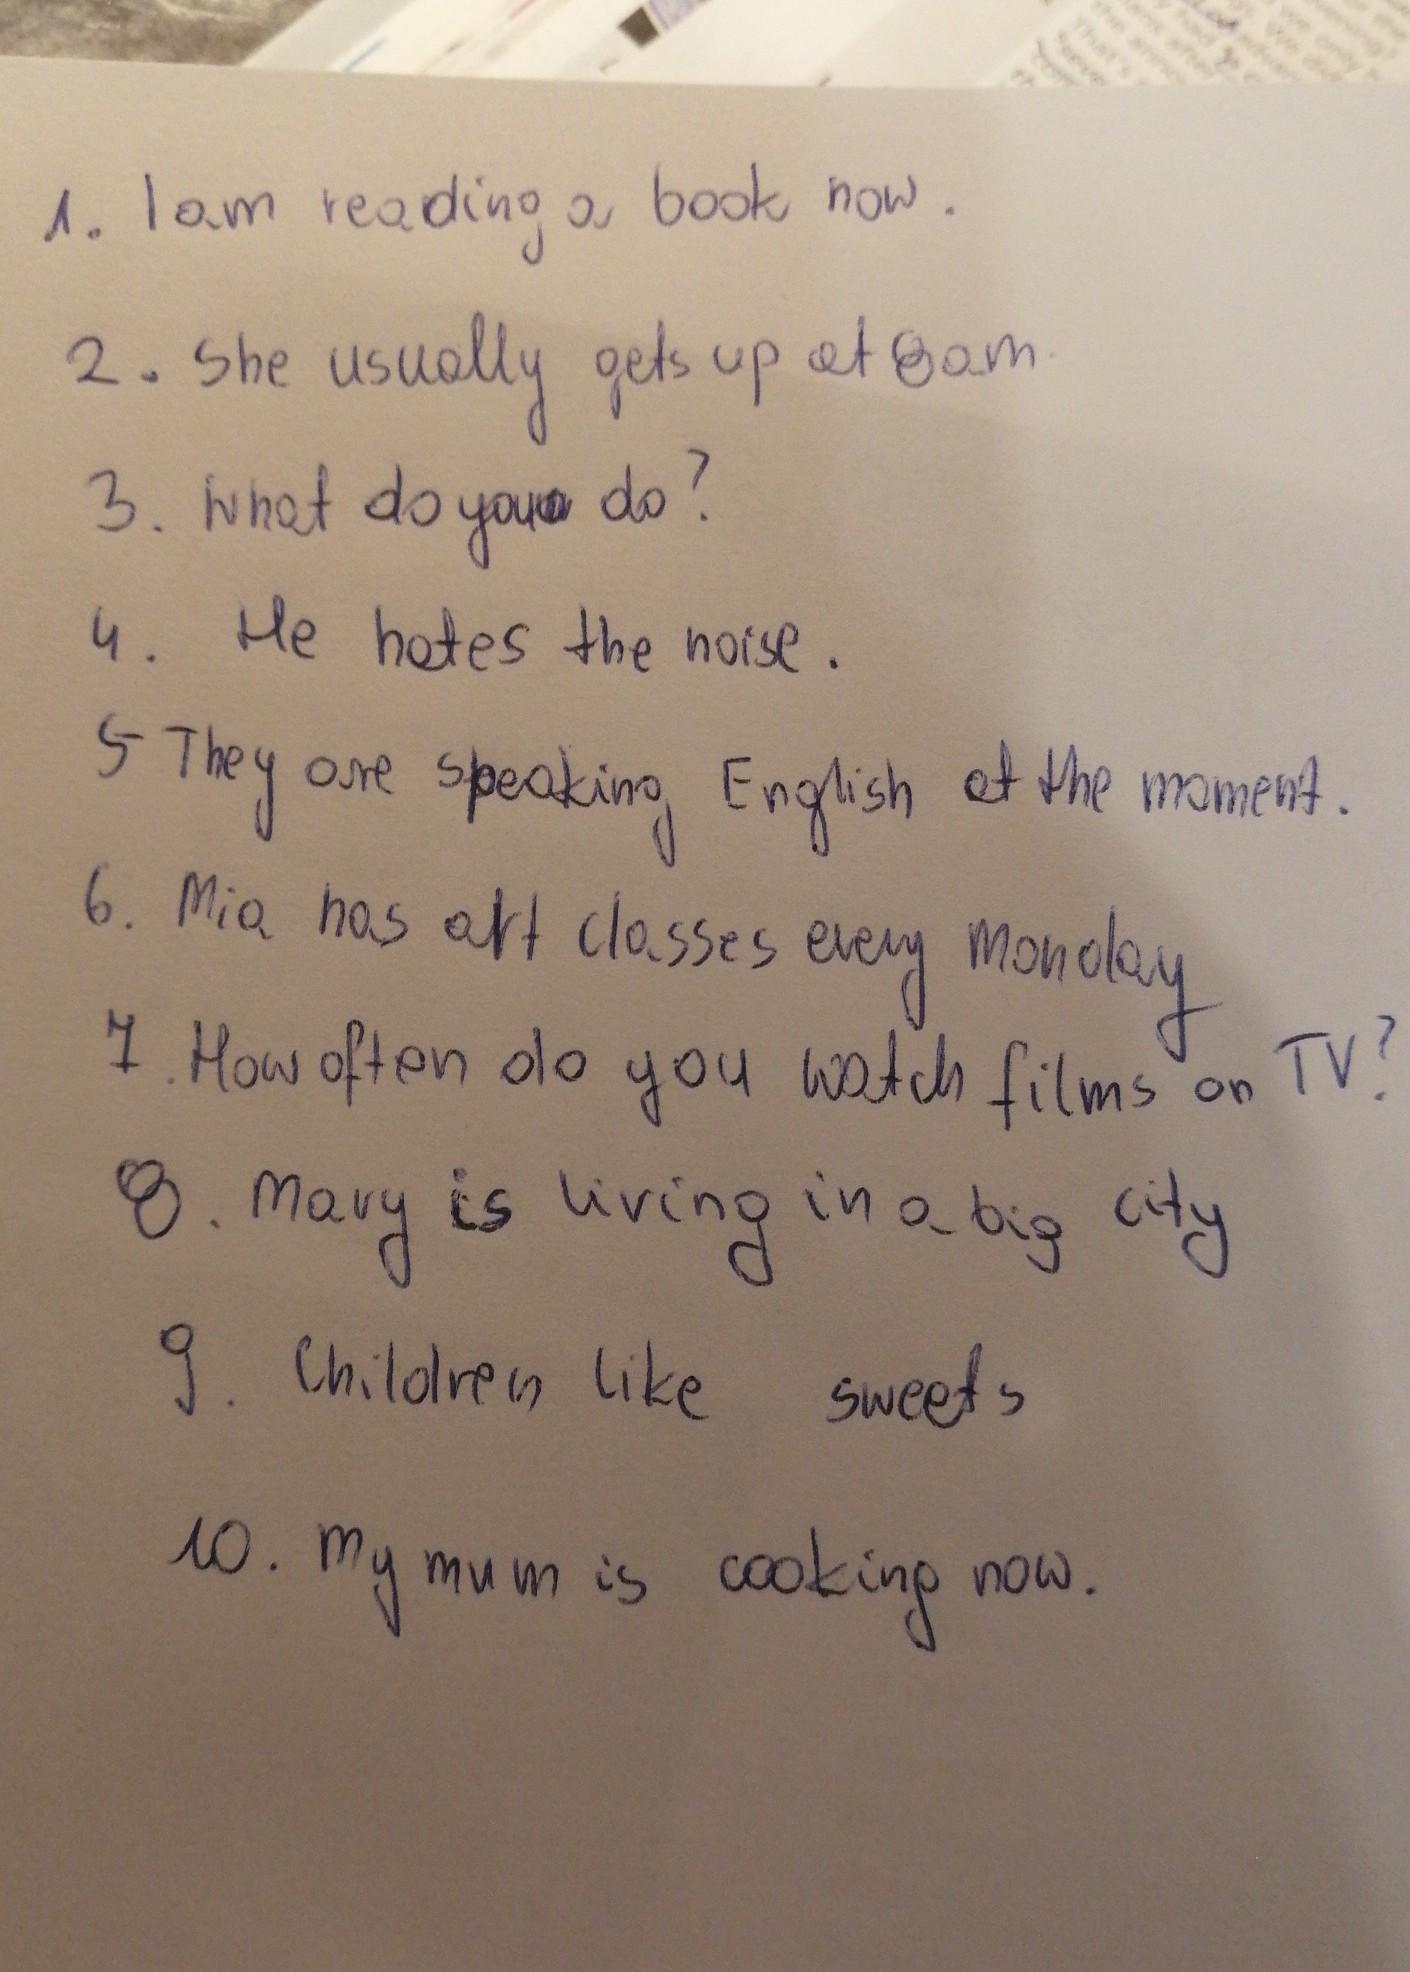 1. I am reading a book now.
2. She usually gets up at 8 am.
3. What do you do?
4. He hates the noise.
5 They are speaking English at the moment.
6. Mia has art classes every Monday
7. How often do you watch films on TV?
8. Mary is living in a big city
9. Children like sweets
10. My mum is cooking now.